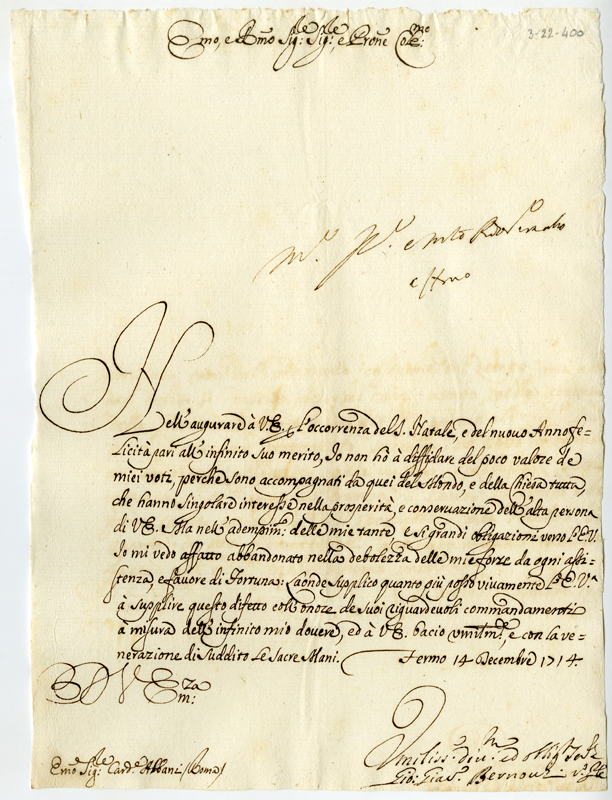 Emo, e Rmo Sig:re Sig:re, e Prone Col:mo
3-22-400
Nell'augurare à V.E. l'occorrenza del S. Natale, e del nuovo Anno fe-
licità pari all'infinito suo merito, Io non hò à diffidare del poco valore de
miei voti, perche sono accompagnati da quei del Mondo, e della Chiesa tutta,
che hanno singolare interesse nella prosperità, e conseruazione dell'alta persona
di V.E. Ma nell'adempim.to delle mie tante e si grandi obligazioni verso l'E.V.
Io mi vedo affatto abbandonato nella debolezza delle mie forze da ogni assi-
stenza, e fauore di Fortuna: Laonde supplico quanto più posso vivamente l'E.V.ra
à supplire questo difetto coll'onore de suoi riguardeuoli commandamenti
a misura dell'infinito mio dovere, ed à V.E. bacio vmilm.te, e con la ve-
nerazione di Suddito Le Sacre Mani. Fermo 14 Decembre 1714.
D V Em:za
Vmiliss.o diu.mo ed obligat.o
Emo Sig:re Card.e Albani (Roma)